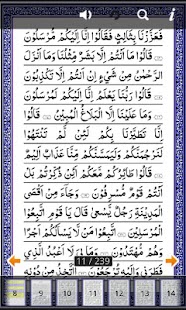 فَعَزَّزْنَا بِثَالِثٍ فَقَالُوٓا اِنَّآ اِلَيْكُمْ مُّرْسَلُوْنَ
قَالُوْا مَآ اَنْتُمْ اِلَّا بَشَرٌ مِّثْلُنَا وَمَآ اَنْزَلَ
الرَّحْمٰنُ مِنْ شَيْءٍ اِنْ اَنْتُمْ اِلَّا تَكْذِبُوْنَ
قَالُوْا رَبُّنَا يَعْلَمُ اِنَّآ اِلَيْكُمْ لَمُرْسَلُوْنَ
وَمَا عَلَيْنَآ اِلَّا الْبَلٰغُ الْمُبِيْنُ قَالُوٓا
اِنَّا تَطَيَّرْنَا بِكُمْ لَئِنْ لَّمْ تَنْتَهُوْا
لَنَرْجُمَنَّكُمْ وَلَيَمَسَّنَّكُمْ مِّنَّا عَذَابٌ اَلِيْمٌ
قَالُوْا طَآئِرُكُمْ مَّعَكُمْ اَئِنْ ذُكِّرْتُمْ بَلْ
اَنْتُمْ قَوْمٌ مُّسْرِفُوْنَ وَجَآءَ مِنْ اَقْصَا
الْمَدِيْنَةِ رَجُلٌ يَّسْعٰى قَالَ يٰقَوْمِ اتَّبِعُوا
الْمُرْسَلِيْنَ اتَّبِعُوْا مَنْ لَّا يَسْـَٔلُكُمْ اَجْرًا
وَّهُمْ مُّهْتَدُوْنَ وَمَا لِيَ لَآ اَعْبُدُ الَّذِيْ
11 / 239
8 9 10 11 12 13 14